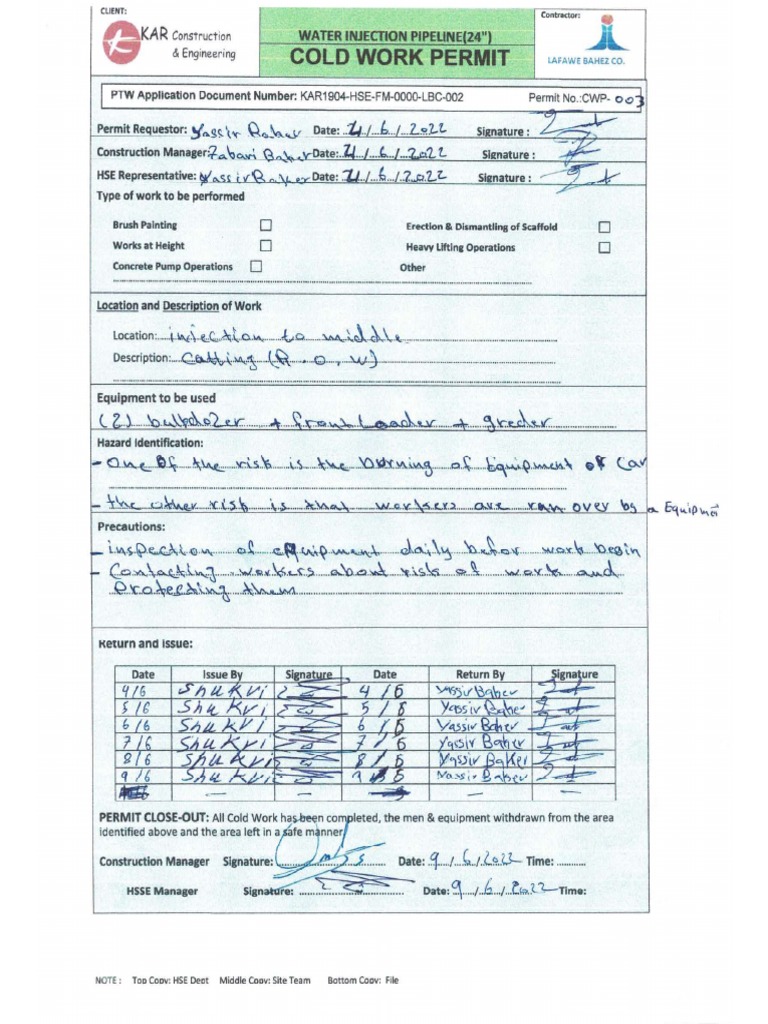 CLIENT:
KAR Construction
& Engineering
WATER INJECTION PIPELINE(24")
COLD WORK PERMIT
Contractor:
LAFAWE BAHEZ CO.
PTW Application Document Number: KAR1904-HSE-FM-0000-LBC-002 Permit No.:CWP- 003
Permit Requestor: Yassir Baher Date: 4/6/2022 Signature :
Construction Manager: Zabari Baher Date: 4/6/2022 Signature :
HSE Representative: Yassir Baker Date: 4/6/2022 Signature :
Type of work to be performed
Brush Painting Erection & Dismantling of Scaffold
Works at Height Heavy Lifting Operations
Concrete Pump Operations Other
Location and Description of Work
Location: injection to middle
Description: Catting (R.o.w)
Equipment to be used
(2) bulldozer + front Loader + greder
Hazard Identification:
- One of the risk is the burning of Equipment of Car
- the other risk is that workers are ran over by a Equipmet
Precautions:
- inspection of equipment daily befor work begin
- Contacting workers about risk of work and
Protecting them
Return and issue:
Date Issue By Signature Date Return By Signature
4/6 Shukri 4/6 Yassir Baher
5/6 Shukri 5/6 Yassir Baher
6/6 Shukri 6/6 Yassir Baher
7/6 Shukri 7/6 Yassir Baher
8/6 Shukri 8/6 Yassir Baker
9/6 Shukri 9/6 Yassir Baker
PERMIT CLOSE-OUT: All Cold Work has been completed, the men & equipment withdrawn from the area
identified above and the area left in a safe manner
Construction Manager Signature: Date: 9/6/2022 Time:
HSSE Manager Signature: Date: 9/6/2022 Time:
NOTE : Top Copy: HSE Dept Middle Copy: Site Team Bottom Copy: File